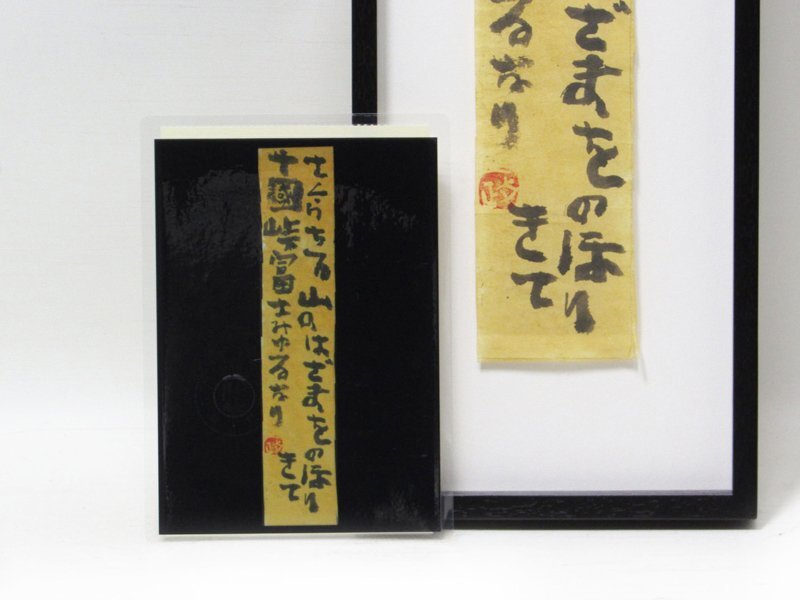 さくらちる山のはざまをのほり
きて
十國峠富士みゆるなり
ざまをのほり
きて
るなり